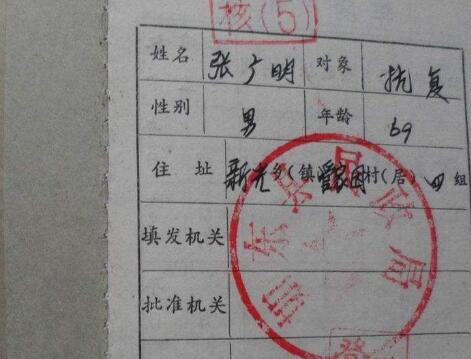 核(5)
姓名 张广明 对象 抗复
性别 男 年龄 69
住址 新光乡(镇)管家园村(居)四组
填发机关
批准机关